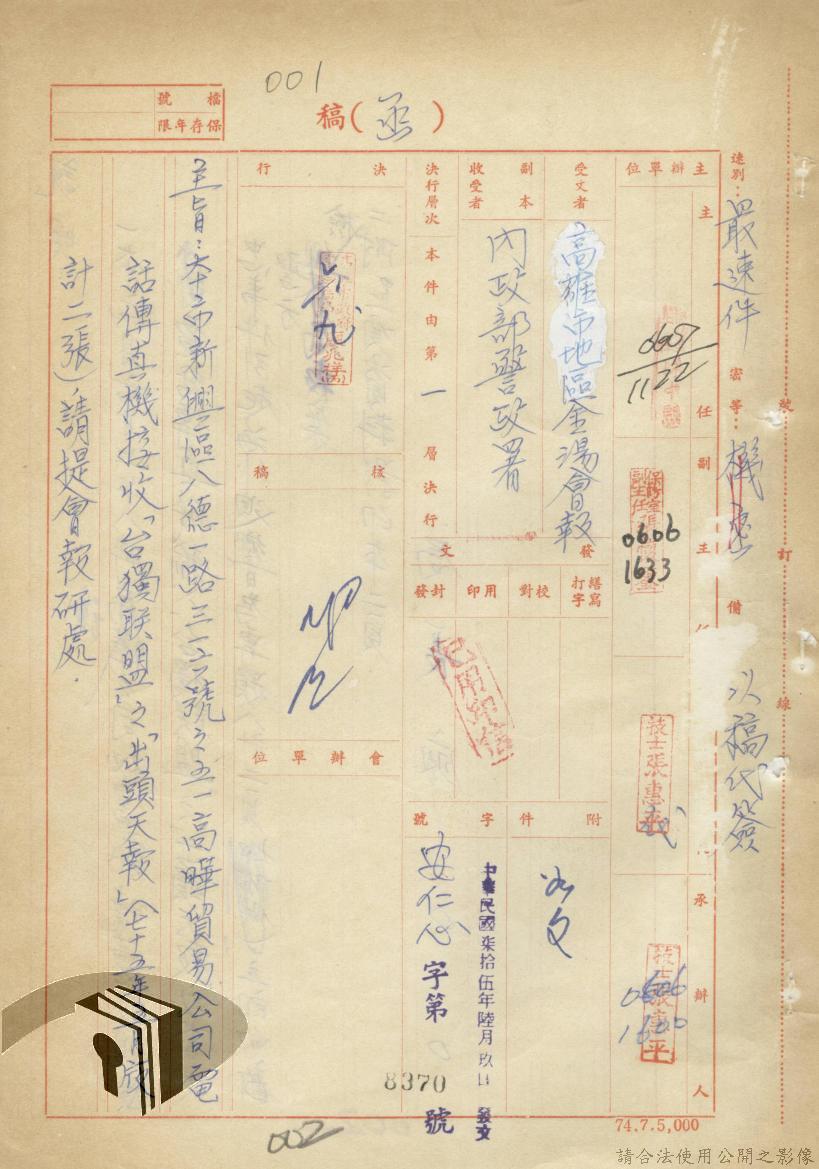 001
檔號
保存年限
稿(函)
速別：最速件
密等：機密
備 以稿代簽
裝訂線
主辦單位
主任
0607
1122
副主任
0606
1633
技士張惠平
承辦人
0606
1600
技士張惠平
受文者
高雄市地區金湯會報
副本收受者
內政部警政署
決行層次
本件由第一層決行
發文
繕寫打字
校對
用印
封發
已用印信
附件
如文
字號
中華民國柒拾伍年陸月玖日發文
安仁心字第
8370
號
決行
六九
核稿
會辦單位
主旨：本市新興區八德一路三一六號之五一高曄貿易公司電
話傳真機接收「台獨联盟」之「出頭天報」（七十五年
計二張），請提會報研處．
002
74.7.5,000
請合法使用公開之影像